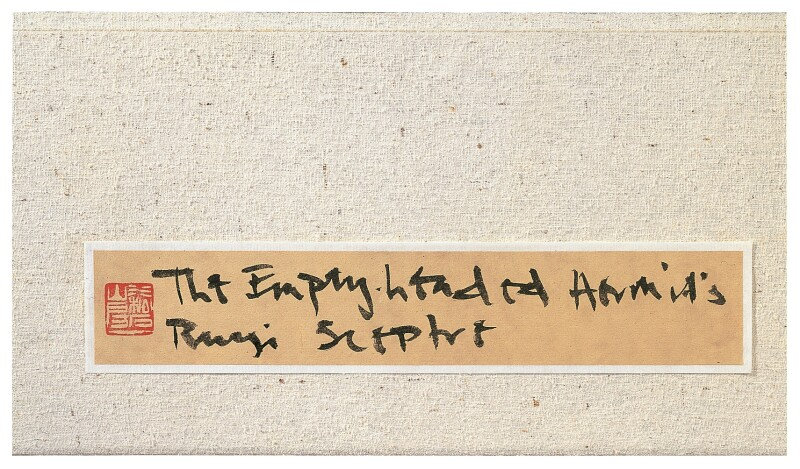 The Empty-headed Hermit's
Ruyi Sceptre